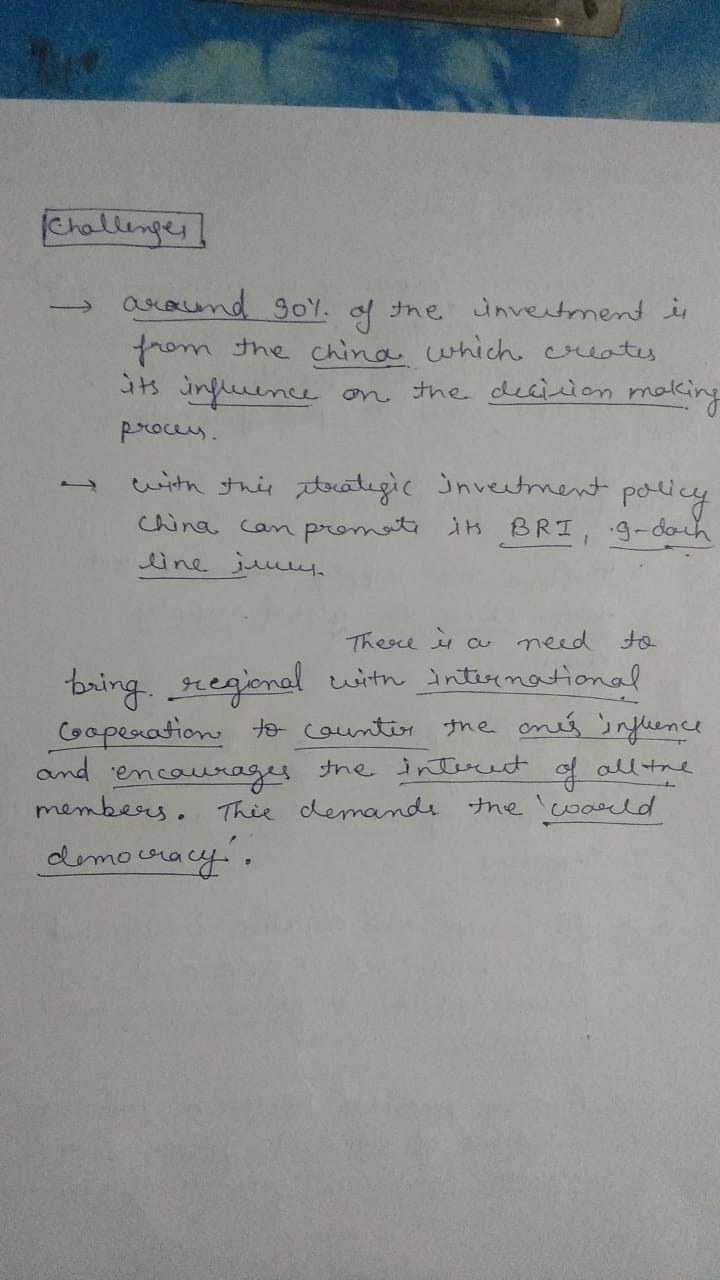 Challenges
→ around 30% of the investment is
from the china which creates
its influence on the decision making
process.
→ with this strategic investment policy
China can promote its BRI, 9-dash
line issues.
There is a need to
bring regional with international
cooperation to counter the one's influence
and encourages the interest of all the
members. This demands the 'world
democracy'.